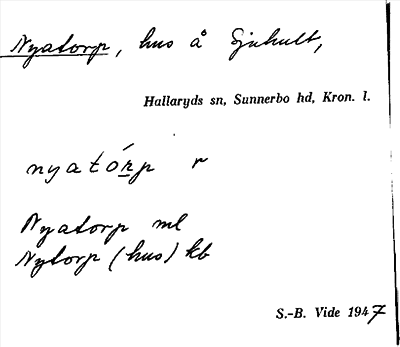 Nyatorp, hus å Sjuhult,
Hallaryds sn, Sunnerbo hd, Kron. l.
nyatórp r
Nyatorp ml
Nytorp (hus) kb
S.-B. Vide 1947